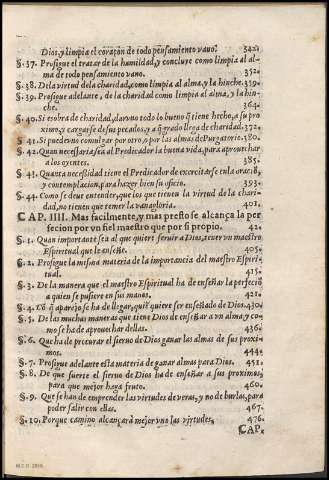 Dios, y limpia el coraçon de todo pensamiento vano. 342.
§. 37. Prosigue el tratar de la humildad, y concluye como limpia al al-
ma de todo pensamiento vano. 352.
§. 38. De la virtud de la charidad, como limpia al alma, y la hinche. 359.
§. 39. Prosigue adelante, de la charidad como limpia al alma, y la hin-
che. 364.
§. 40. Si es obra de charidad, dar vno todo lo bueno q̃ tiene hecho, a su pro
ximo, y cargarse de sus pecados, y a q̃ grado llega de charidad. 372.
§. 41. Si puede vno comulgar por otro, y por las almas de Purgatorio. 380.
§. 42. Quan necessaria sea al Predicador la buena vida, para aprouechar
a los oyentes. 385.
§. 43. Quanta necessidad tiene el Predicador de exercitarse en la oraciõ,
y contemplacion, para hazer bien su oficio. 393.
§. 44. Como se deue entender, que los que tienen la virtud de la chari-
dad, no tienen que temer la vanagloria. 401.
CAP. IIII. Mas facilmente, y mas presto se alcança la per
fecion por vn fiel maestro que por si propio. 42.
§. 1. Quan importante sea al que quiere seruir a Dios, tener vn maestro
Espiritual que le enseñe. 405.
§. 2. Prosigue la misma materia de la importancia del maestro Espiri-
tual. 415.
§. 3. De la manera que el maestro Espiritual ha de enseñar la perfeciõ
a quien se pusiere en sus manos. 421.
§. 4. Lo q̃ aparejo se ha de llegar, quiẽ quiere ser enseñado de Dios. 430.
§. 5. De las muchas maneras que tiene Dios de enseñar a vn alma, y co-
mo se ha de aprouechar dellas. 436.
§. 6. Que ha de procurar el sieruo de Dios ganar las almas de sus proxi-
mos. 444.
§. 7. Prosigue adelante esta materia de ganar almas para Dios. 451.
§. 8. De que suerte el sieruo de Dios ha de enseñar a sus proximos,
para que mejor haga fruto. 460.
§. 9. Que se han de emprender las virtudes de veras, y no de burlas, para
poder salir con ellas. 467.
§. 10. Porque camino alcançarà mejor vno las virtudes. 476.
CAP.